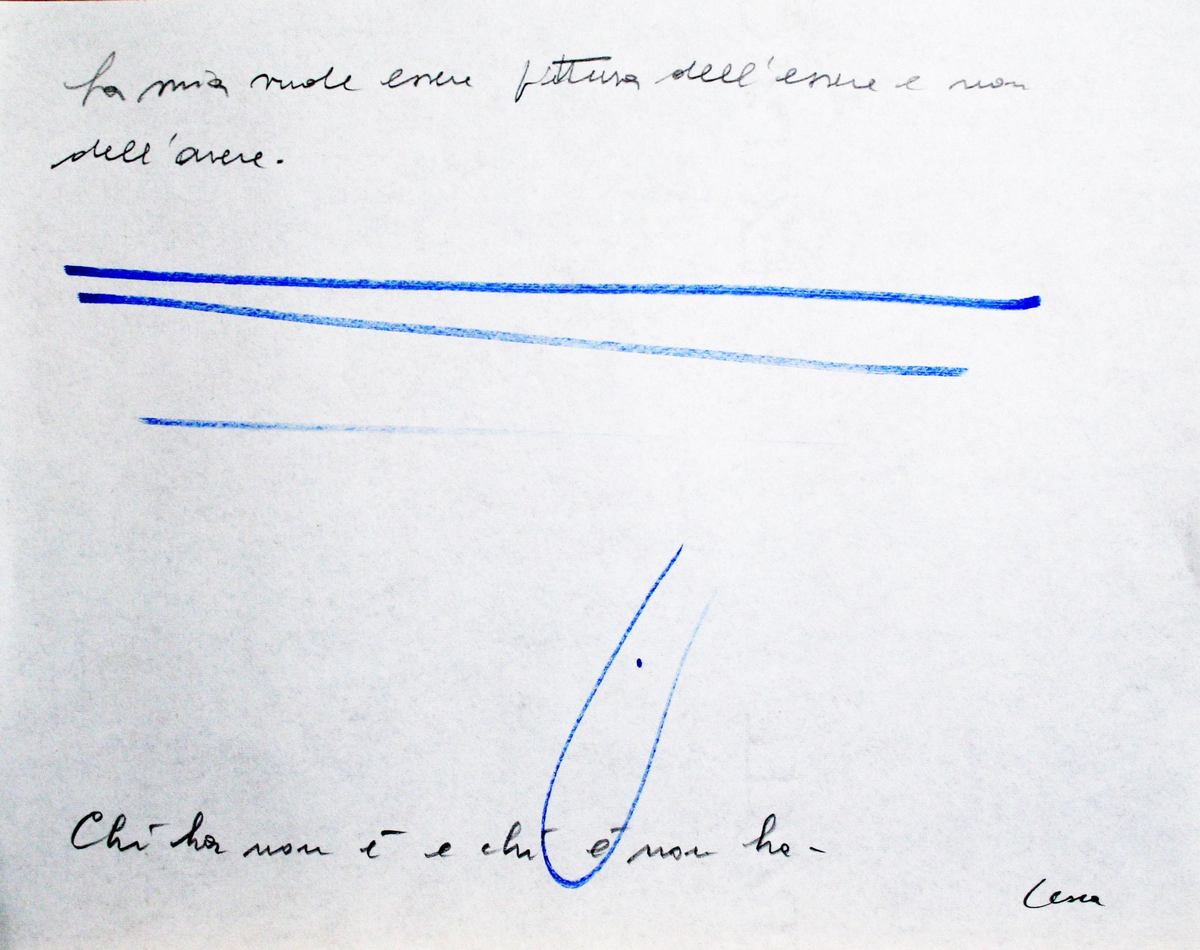 La mia vuole essere pittura dell'essere e non
dell'avere.
Chi ha non è e chi è non ha-